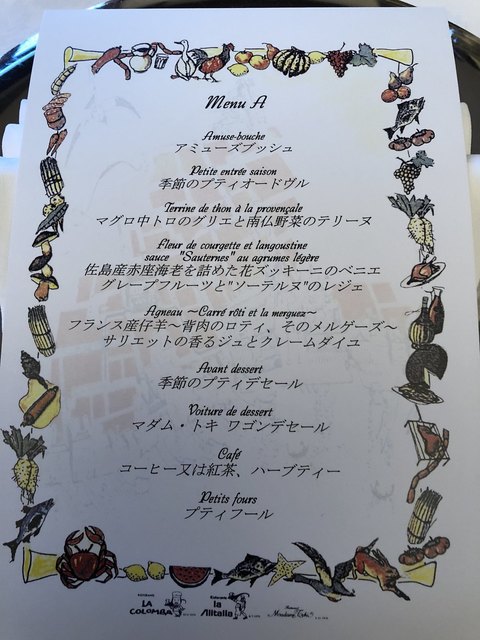 Menu A
Amuse-bouche
アミューズブッシュ
Petite entrée saison
季節のプティオードヴル
Terrine de thon à la provençale
マグロ中トロのグリエと南仏野菜のテリーヌ
Fleur de courgette et langoustine
sauce "Sauternes" au agrumes légère
佐島産赤座海老を詰めた花ズッキーニのベニエ
グレープフルーツと"ソーテルヌ"のレジェ
Agneau ～Carré rôti et la merguez～
フランス産仔羊～背肉のロティ、そのメルゲーズ～
サリエットの香るジュとクレームダイユ
Avant dessert
季節のプティデセール
Voiture de dessert
マダム・トキ ワゴンデセール
Café
コーヒー又は紅茶、ハーブティー
Petits fours
プティフール
LA COLOMBA
la Alitalia
Madame Toki